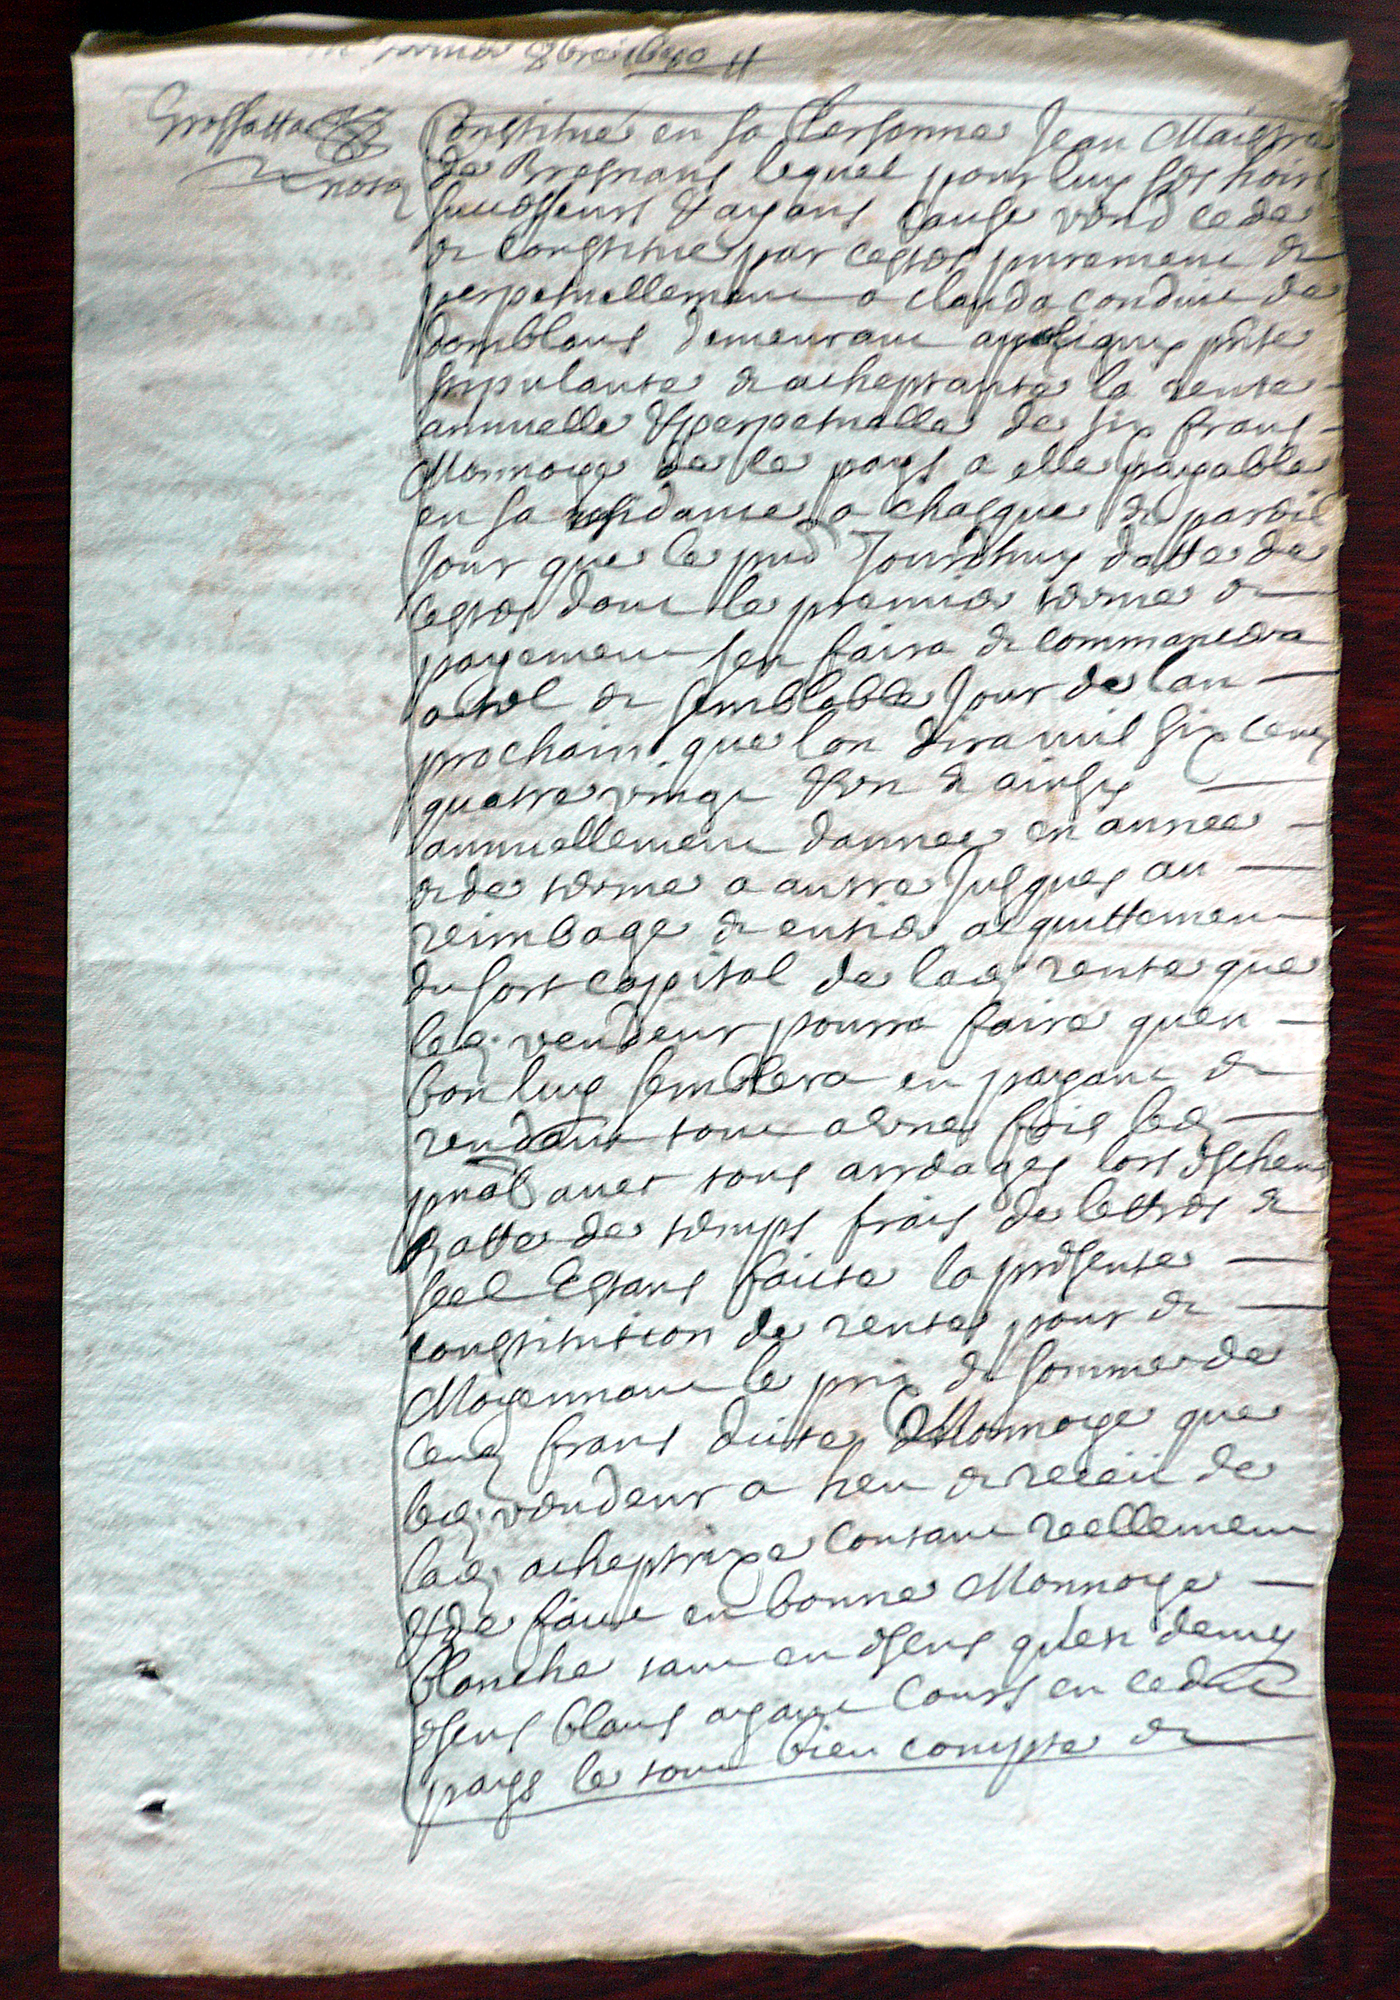 Grossatta
nota
Constitué en sa personne Jean Maistre
de Bresnans lequel pour luy ses hoirs
successeurs & ayans cause vend cede
et constitue par cestes purement et
perpetuellement a clauda conduit de
domblans demeurant apoligny pnte
stipulante et acheptante la rente
annuelle & perpetuelle de six frans
Monnoye de ce pays a elle payable
en sa residance a chasque et pareil
Jour que le pnd Jourdhuy datte de
cestes dont le premier terme et
payement sen faira et commancera
a tel et semblable Jour de lan
prochain que lon dira mil six cens
quatre vingt & un et ainsy
annuellement dannee en annee
et de terme a autre Jusques au
reimbage et entier acquittement
du sort capital de lad. rente que
led. vendeur pourra faire quen
bon luy semblera en payant et
rendant tout a une fois led.
pnāl avec tous arrerages lors escheus
Ratte de temps frais de lettres et
seel Estant faicte la presente
constitution de rente pour et
Moyennant le prix et somme de
cent frans dicte Monnoye que
led. vendeur a heu et receu de
lad. acheptrixe contant reellement
& de faict en bonne Monnoye
blanche tant en escus quen demy
escus blans ayant cours en ced.
pays le tout bien compté et